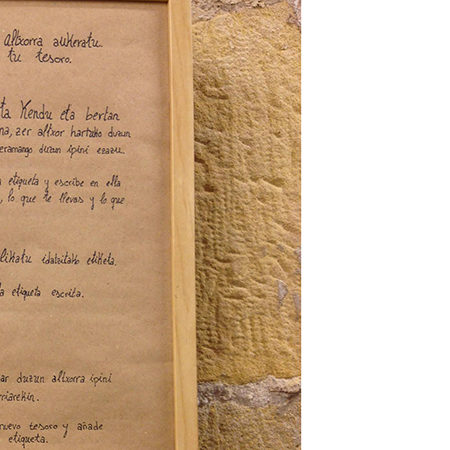 altxorra aukeratu.
tu tesoro.
ta Kendu eta bertan
na, zer altxor hartuko duzun
eramango duzun ipini ezazu.
a etiqueta y escribe en ella
, lo que te llevas y lo que
likatu idatzitako etiketa.
la etiqueta escrita.
ar duzun altxorra ipini
rriarekin.
nuevo tesoro y añade
etiqueta.